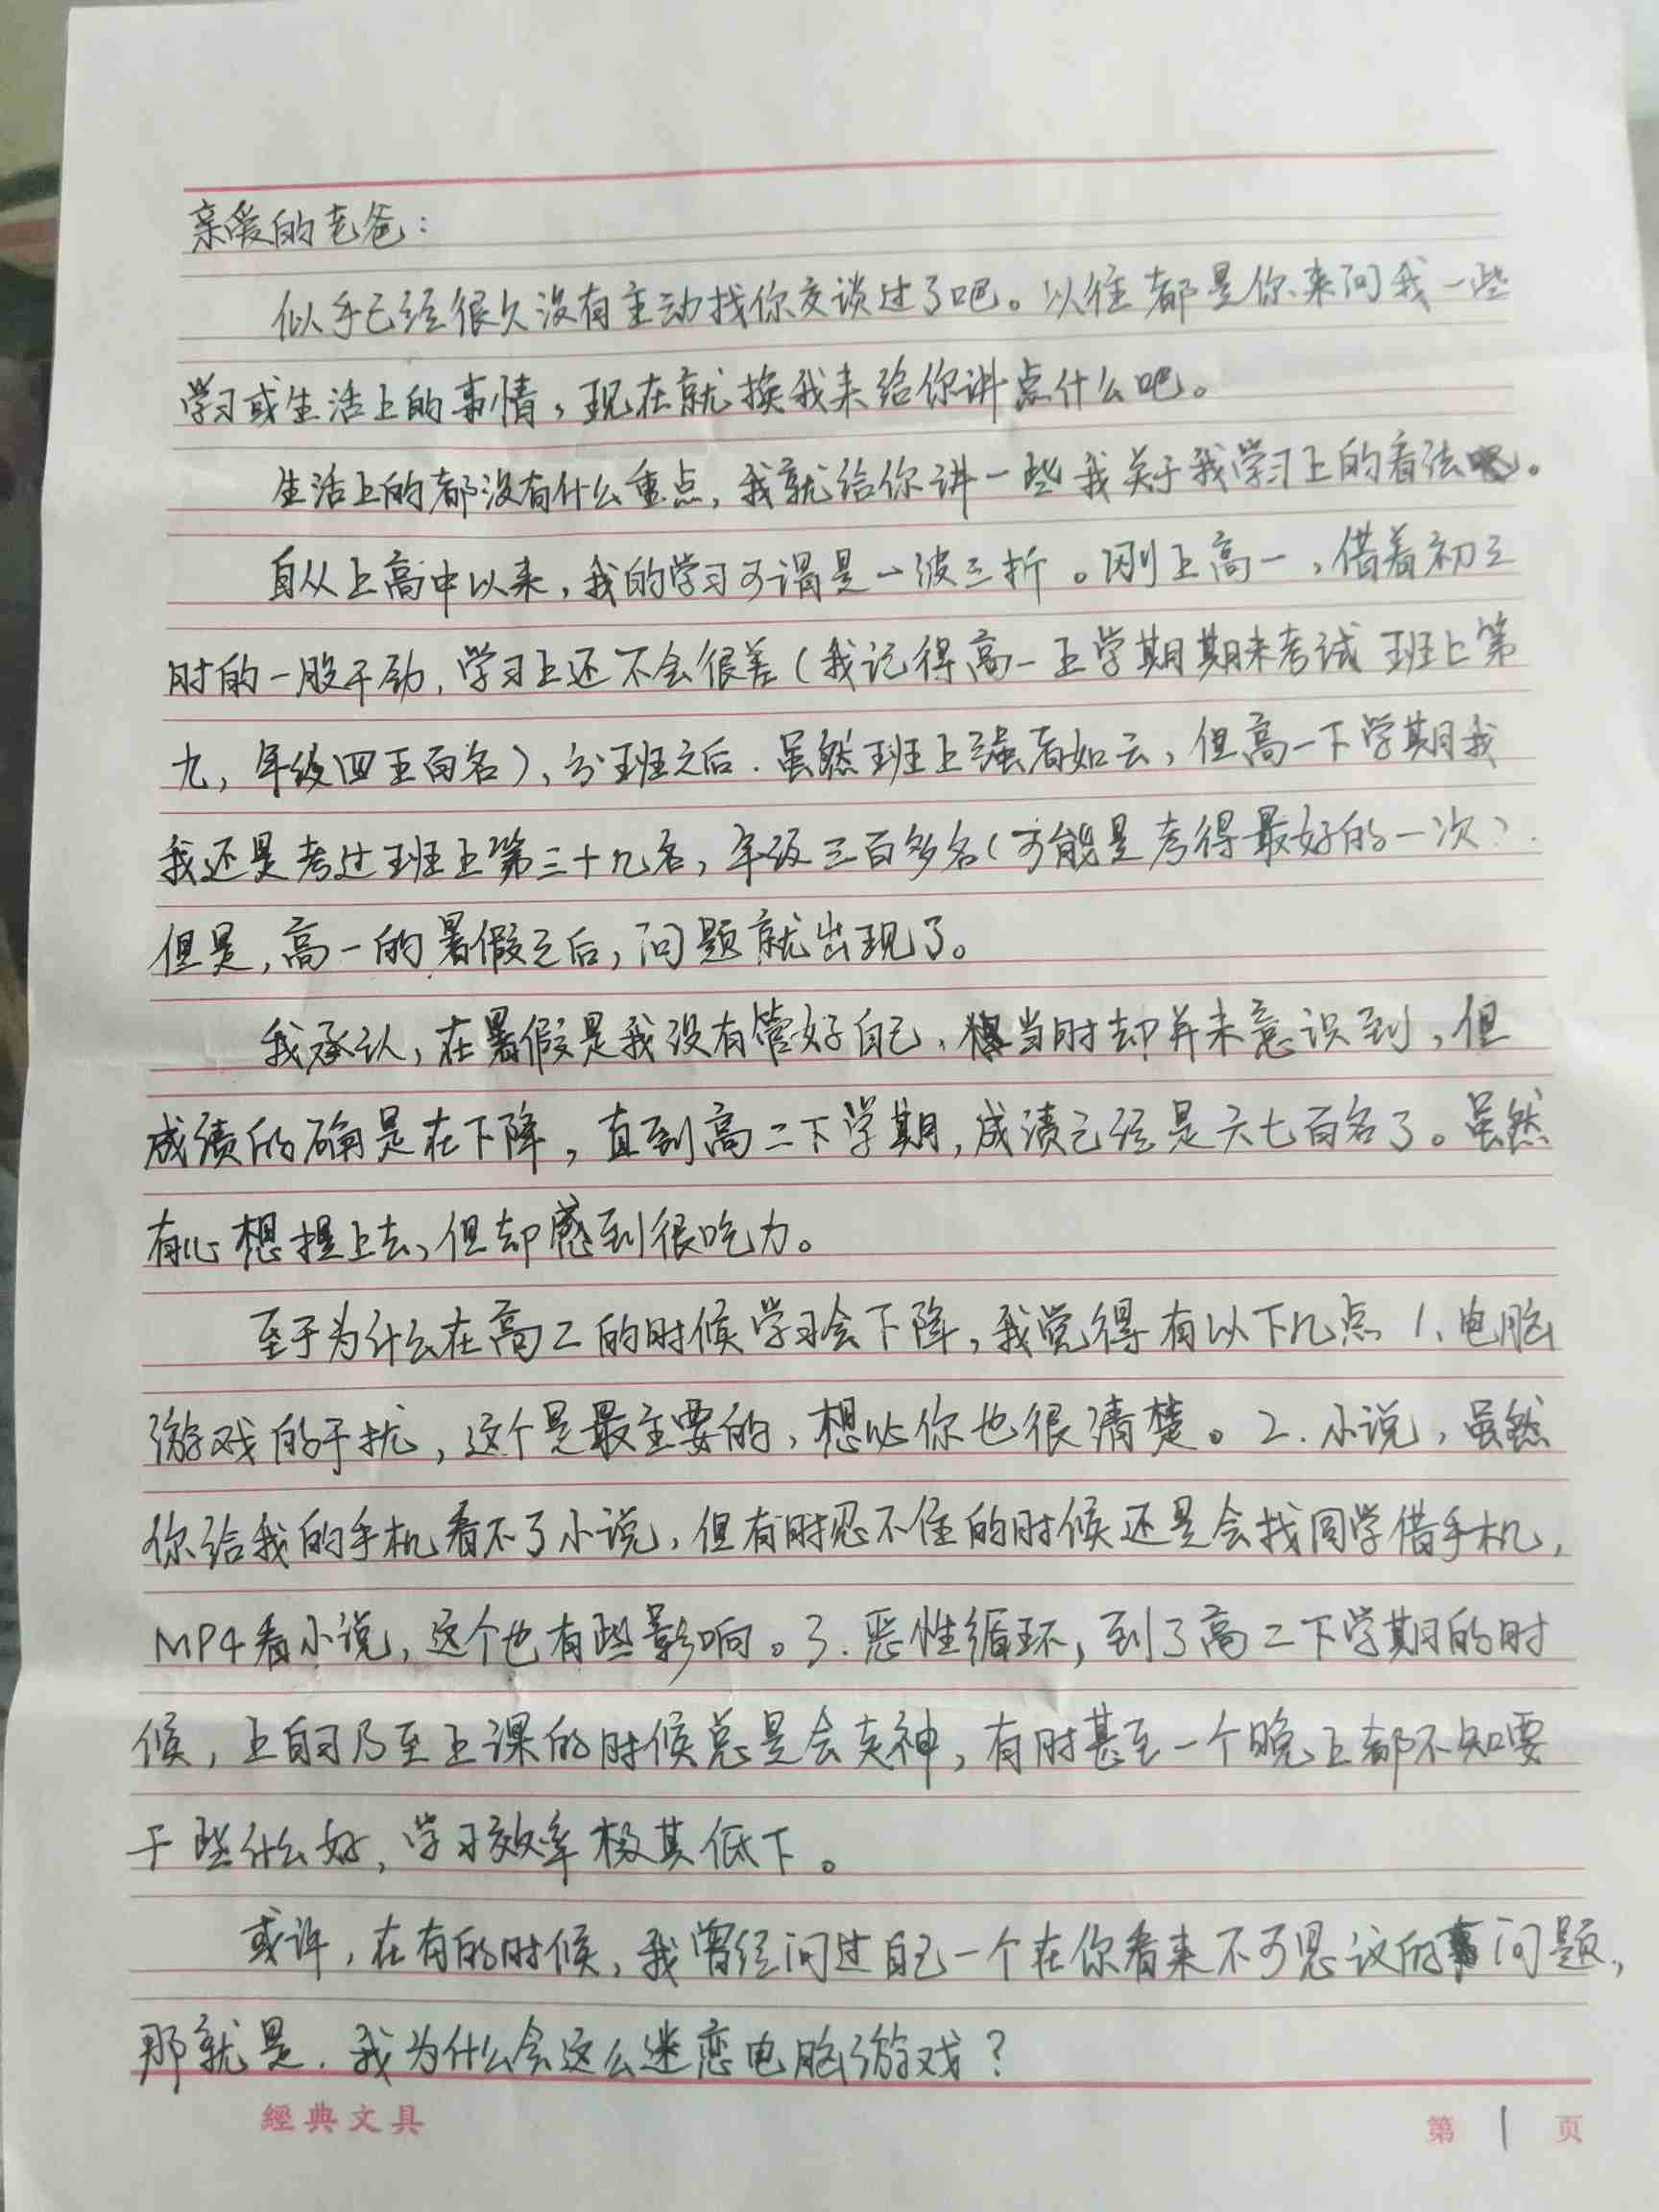 亲爱的老爸：
似乎已经很久没有主动找你交谈过了吧。以往都是你来问我一些
学习或生活上的事情，现在就换我来给你讲点什么吧。
生活上的都没有什么重点，我就给你讲一些我关于我学习上的看法吧。
自从上高中以来，我的学习可谓是一波三折。刚上高一，借着初三
时的一股干劲，学习上还不会很差（我记得高一上学期期末考试班上第
九，年级四五百名），分班之后．虽然班上强者如云，但高一下学期我
我还是考过班上第三十九名，年级三百多名（可能是考得最好的一次）．
但是，高一的暑假之后，问题就出现了。
我承认，在暑假是我没有管好自己，当时却并未意识到，但
成绩的确是在下降，直到高二下学期，成绩已经是六七百名了。虽然
有心想提上去，但却感到很吃力。
至于为什么在高二的时候学习会下降，我觉得有以下几点 1、电脑
游戏的干扰，这个是最主要的，想必你也很清楚。2．小说，虽然
你给我的手机看不了小说，但有时忍不住的时候还是会找同学借手机，
MP4看小说，这个也有些影响。3．恶性循环，到了高二下学期的时
候，上自习乃至上课的时候总是会失神，有时甚至一个晚上都不知要
干些什么好，学习效率极其低下。
或许，在有的时候，我曾经问过自己一个在你看来不可思议的问题，
那就是．我为什么会这么迷恋电脑游戏？
經典文具
第 1 页